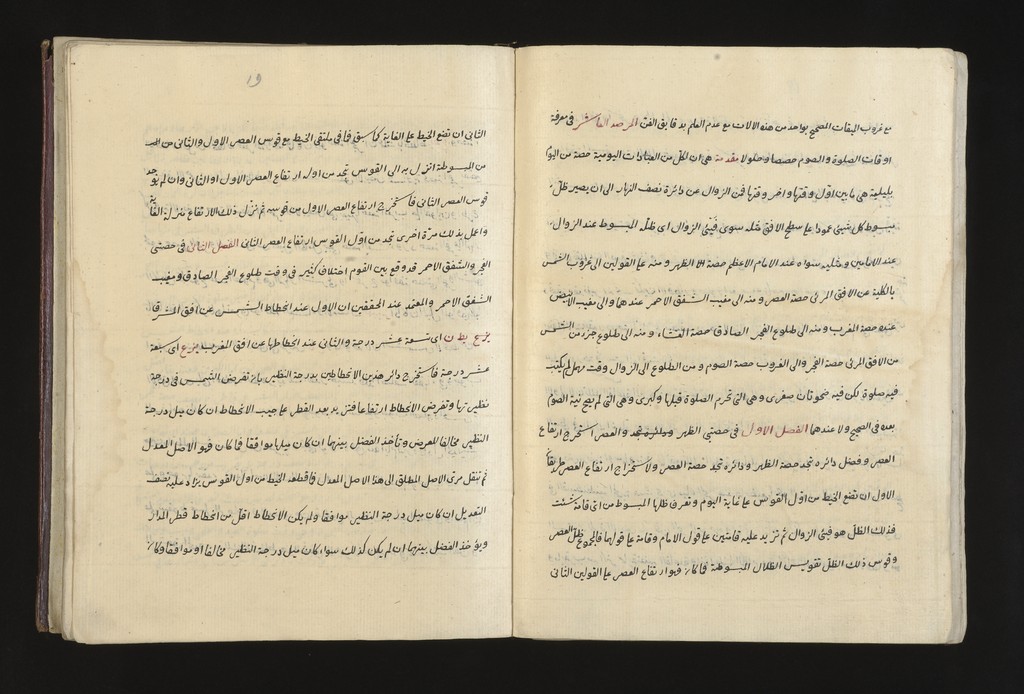 مع غروب الميقات الصحيح بواحد من هذه الالات مع عدم العلم بدقايق الفن المرصد العاشر فى معرفة
اوقات الصلوة والصوم حصصا وحلولا مقدمة هى ان لكل من العبادات اليومية حصة من اليوم
بليليته هى ما بين اول وقتها واخر وقتها فمن الزوال عن دائرة نصف النهار الى ان يصير ظل
مبسوط كل شيئ عمودا على سطح الافق مثله سوى فيئى الزوال اى ظله المبسوط عند الزوال
عند الامامين ومثليه سواه عند الامام الاعظم حصة الظهر ومنه على القولين الى غروب الشمس
بالكلية عن الافق المرئى حصة العصر ومنه الى مغيب الشفق الاحمر عندهما والى مغيب الابيض
عنده حصة المغرب ومنه الى طلوع الفجر الصادق حصة العشاء ومنه الى طلوع جزء من الشمس
من الافق المرئى حصة الفجر والى الغروب حصة الصوم ومن الطلوع الى الزوال وقت مهمل لم يكتب
فيه صلوة لكن فيه ضحوتان صغرى وهى التى تحرم الصلوة قبلها وكبرى وهى التى لم يصح نية الصوم
بعده فى الصحيح ولا عندها الفصل الاول فى حصتى الظهر والعصر استخرج ارتفاع
العصر وفضل دائره تجد حصة الظهر ودائره تجد حصة العصر ولاستخراج ارتفاع العصر طريقان
الاول ان تضع الخيط من اول القوس على غاية اليوم وتعرف ظلها المبسوط من اى قامة شئت
فذلك الظل هو فيئى الزوال ثم تزيد عليه قامتين على قول الامام وقامة على قولهما فالمجموع ظل العصر
وقوس ذلك الظل تقويس الظلال المبسوطة فما كان فهو ارتفاع العصر على القولين الثانى
١٩
الثانى ان تضع الخيط على الغاية كما سبق فما فى ملتقى الخيط مع قوس العصر الاول والثانى من
من المبسوطة انزل به الى القوس تجد من اوله ارتفاع العصر الاول او الثانى وان لم يوجد
قوس العصر الثانى فاستخرج ارتفاع العصر الاول من قوسه ثم نزل ذلك الارتفاع منزلة الغاية
واعمل بذلك مرة اخرى تجد من اول القوس ارتفاع العصر الثانى الفصل الثانى فى حصتى
الفجر والشفق الاحمر قد وقع بين القوم اختلاف كثير فى وقت طلوع الفجر الصادق ومغيب
الشفق الاحمر والمعتمد عند المحققين ان الاول عند انحطاط الشمس عن افق المشرق
اى تسعة عشر درجة والثانى عند انحطاطها عن افق المغرب اى سبعة
عشر درجة فاستخرج دائر هذين الانحطاطين بدرجة النظير بان تفرض الشمس فى درجة
نظيرتها وتفرض الانحطاط ارتفاعا فتزيد بعد القطر على جيب الانحطاط ان كان ميل درجة
النظير مخالفا للعرض وتأخذ الفضل بينهما ان كان ميلها موافقا فما كان فهو الاصل المعدل
ثم تنقل مرى الاصل المطلق الى هذا الاصل المعدل فما قطعه الخيط من اول القوس يزاد عليه نصف
التعديل ان كان ميل درجة النظير موافقا ولم يكن الانحطاط اقل من انحطاط قطر المدار
ويؤخذ الفضل بينهما ان لم يكن كذلك سواء كان ميل درجة النظير مخالفا او موافقا وكان